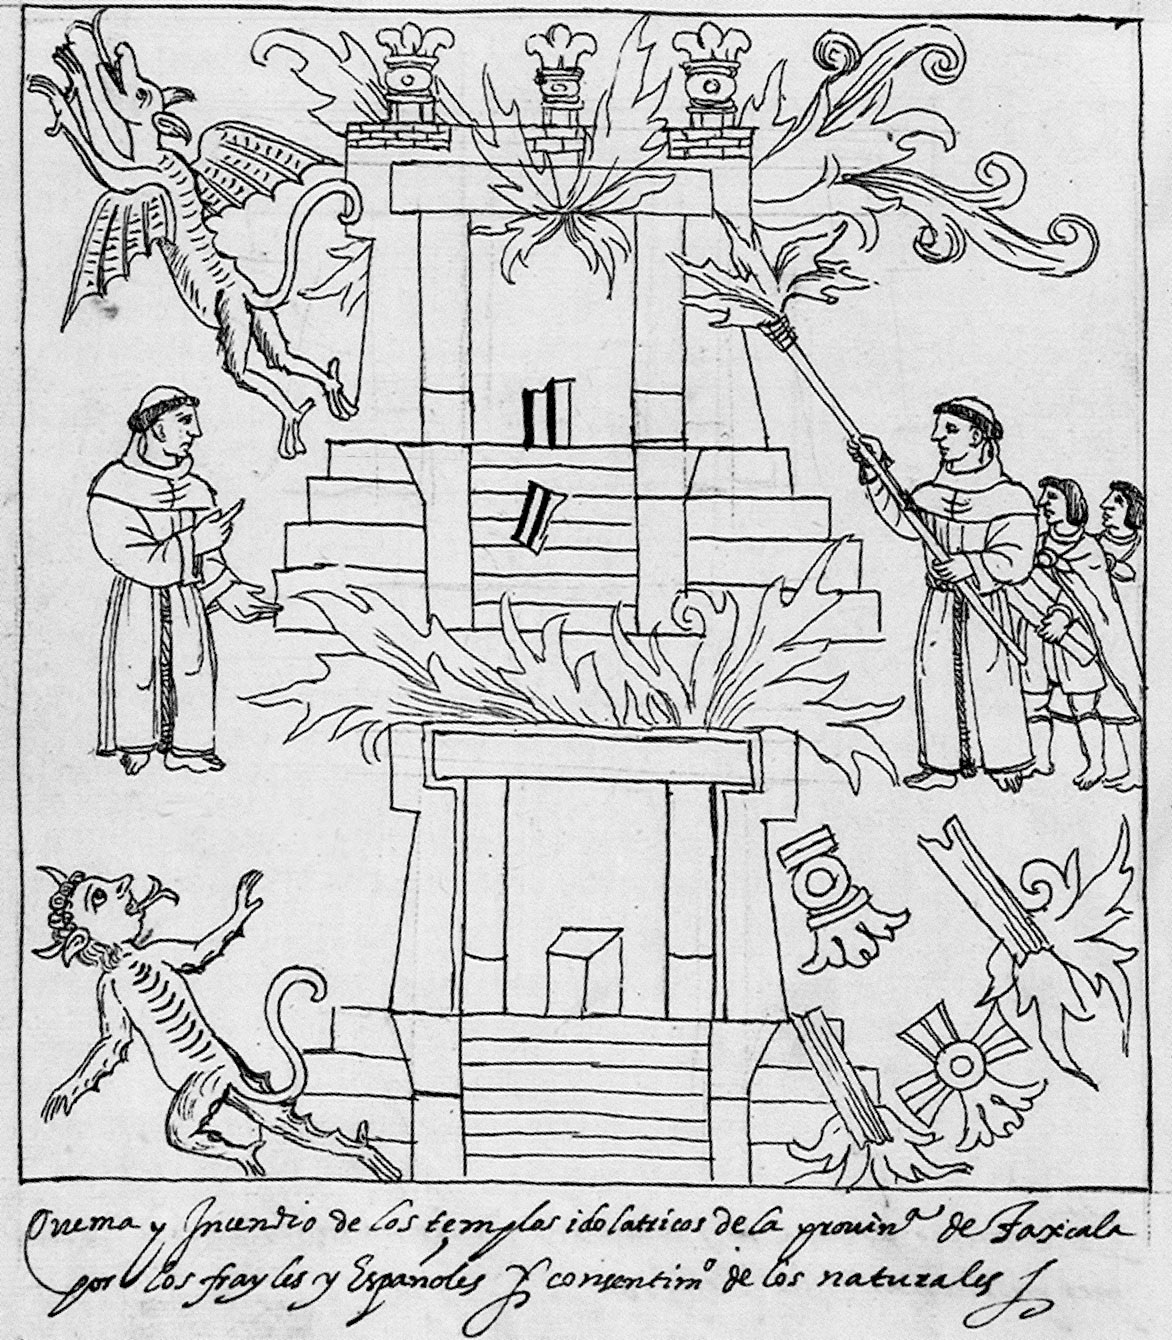 Quema y Incendio de los templos idolatricos de la prouinª de Taxcala
por los frayles y Españoles y consentimº de los naturales